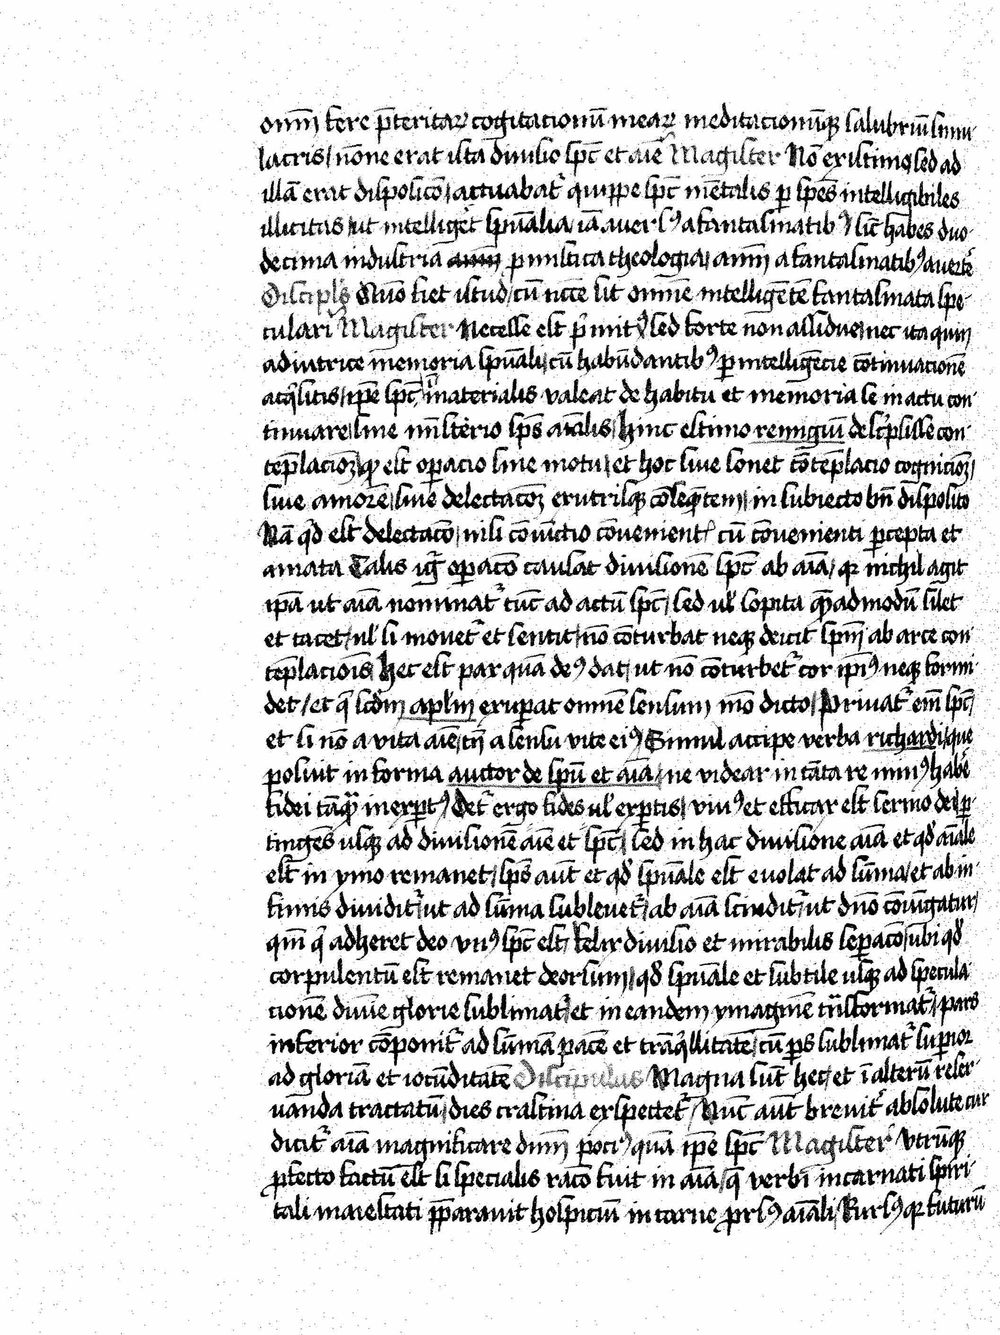 om̄i fere p̄teritaꝝ cogitacionū meaꝝ meditacionūqꝫ salubriū simu
lacris / nōne erat ista diuisio spc̄ et aīe Magister Nō existimo sed ad
illā erat disposicō / actuabat᷑ quippe spc̄ mētalis ꝑ spēs intelligibiles
illicitas / ut intelliget᷑ spūalia iā auersꝰ a fantasmatibꝰ / sic̄ habes duo
decima industria ꝑ mistica theologia / aīm a fantasmatibꝰ auerte᷑
Discipl's Quo fiet istud / cū necē sit om̄ne intelligētē fantasmata spe
culari Magister Necesse est p̄mitꝰ / sed forte non assidue / nec ita quin
adiutrice memoria spūali / cū habūdantibꝰ ꝑ intelligēcie cōtinuacionē
acq̄sitis / ip̄e spc̄ īmaterialis valeat de habitu et memoria se in actu con
tinuare / sine mīsterio spūs aīalis / Hinc estimo remigiū descpsisse con
tēplacioꝫ / qꝫ est oꝑacio sine motu / et hoc siue sonet cōtēplacio cognicioꝫ /
siue amorē / siue delectacōꝫ ex utrisqꝫ cōseq̄tem / in subiecto bn̄ disposito
Nā qd̄ est delectacō / nisi cōiūctio cōuenient᷑ cū conuenienti ꝑcepta et
amata Talis iḡ oꝑacō causat diuisionē spc̄ ab aīa / qꝛ nichil agit
ip̄a ut aīa nominat᷑ tūc ad actū spc̄ / sed ul' sopita qͣmadmodū silet
et tacet / ul' si mouet᷑ et sentit / nō cōturbat neqꝫ deicit spm̄ ab arce con
tēplaciōis Hec est pax quā deꝰ dat / ut nō cōturbet᷑ cor ip̄iꝰ neqꝫ formi
det / et q̄ scdm̄ aplm̄ exuꝑat omnē sensum mō dicto / Priuat᷑ em̄ spc̄ /
et si nō a vita aīe / tn̄ a sensu vite eiꝰ / Simul accipe verba richardi / que
posuit in forma auctor de spū et aīa / ne videar in tāta re minꝰ habē
fidei tāqͣ inexꝑtꝰ / Det᷑ ergo fides ul' exꝑtis / viuꝰ et efficax est sermo dei / ꝑ
tingēs usqꝫ ad diuisionē aīe et spc̄ / sed in hac diuisione aīa et qd̄ aīale
est in ymo remanet / spūs aut̄ et qd̄ spūale est euolat ad sūma / et ab in
fimis diuidit᷑ / ut ad sūma subleuet᷑ / ab aīa scindit᷑ / ut dn̄o cōiūgatur /
qm̄ q̄ adheret deo vnꝰ spc̄ est / felix diuisio et mirabilis seꝑacō / ubi qd̄
corpulentū est remanet deorsum / qd̄ spūale et subtile usqꝫ ad specula
tionē diuīe glorie sublimat᷑ / et in eandem ymaginē trāsformat᷑ / pars
inferior cōponit᷑ ad sūmā pacē et trāq̄llitatē / cū ꝑs sublimat᷑ suꝑior
ad gloriā et iocūditatē Discipulus Magna sūt hec / et ī alterū reser
uanda tractatū / dies crastina exspectet᷑ / Nūc aut̄ breuit᷑ absolute cur
dicit᷑ aīa magnificare dn̄m pociꝰ quā ip̄e spc̄ Magister Vtrūqꝫ
ꝓfecto factū est si specialis racō fuit in aīa / q̄ verbi incarnati spiri
tali maiestati p̄ꝑarauit hospiciū in carne prorsꝰ aīali / Rursꝰ qꝛ futurū